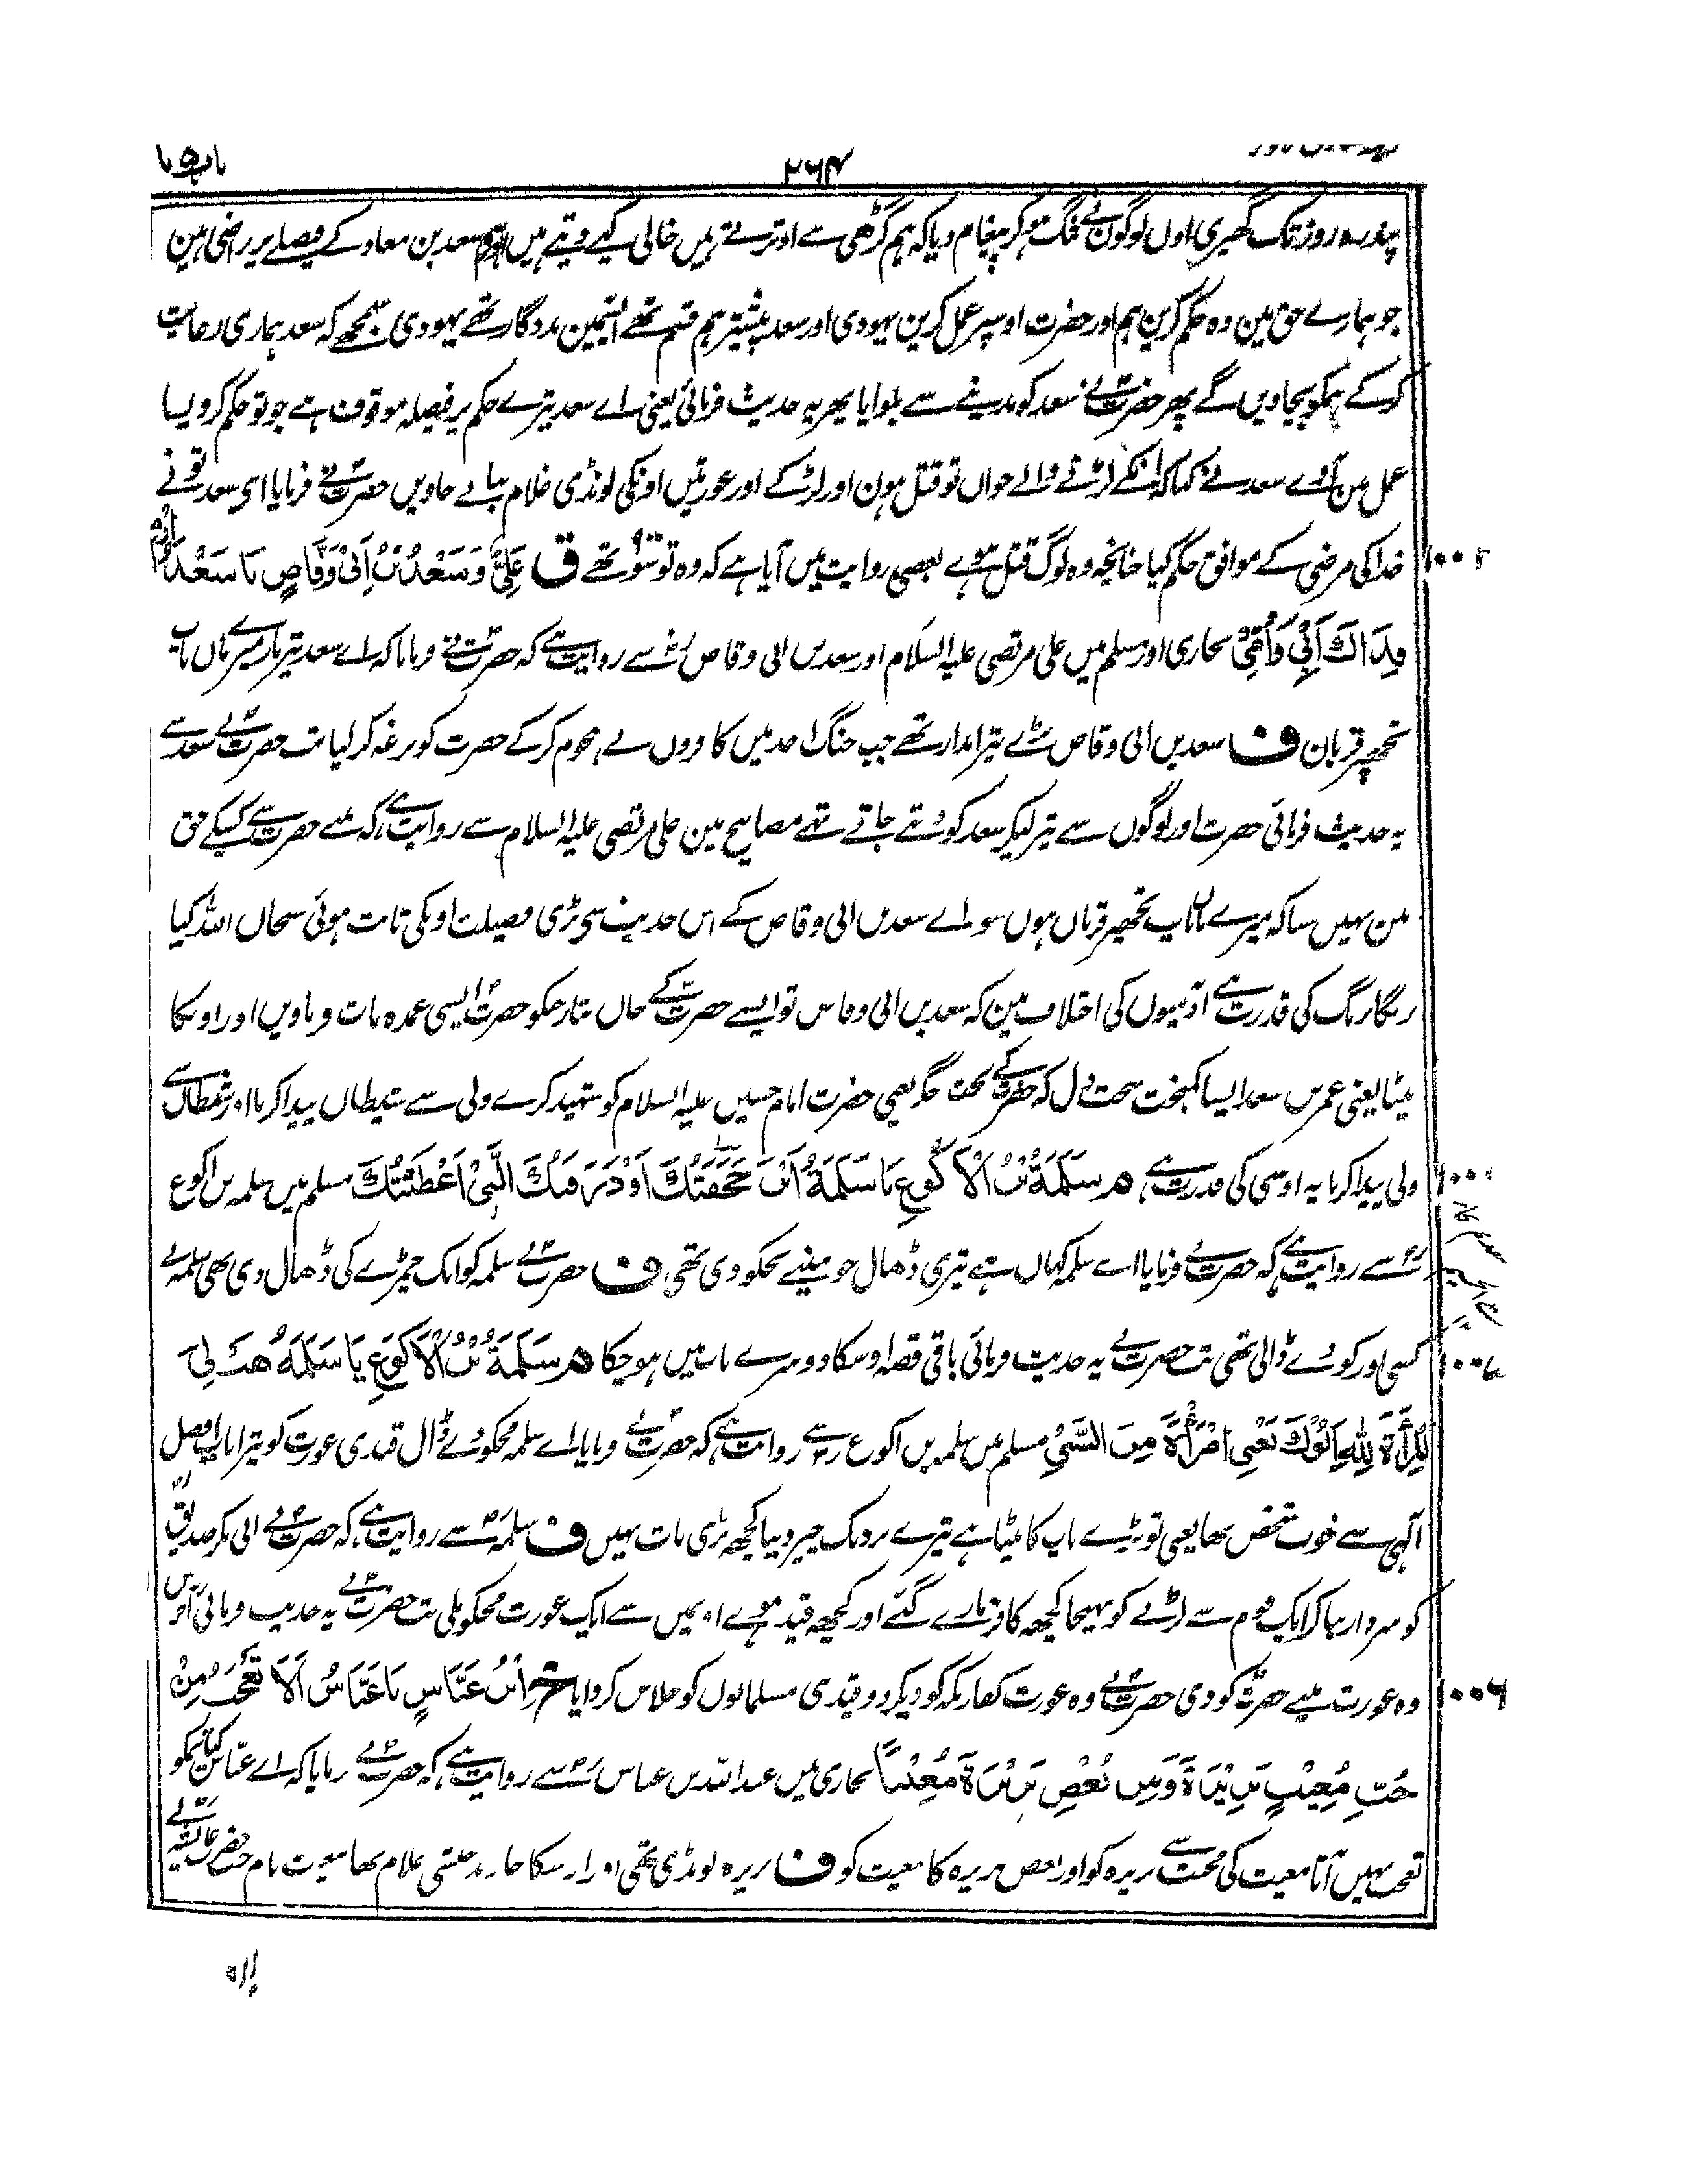 باب ۵ یا
۲۶۴
پندرہ روز تک گھیری اون لوگون نے تنگ ہو کر پیغام دیا کہ ہم گڑھی سے اوترتے ہیں خالی کیے دیتے ہیں اور ہم سعد بن معاذ کے فیصلے پر راضی ہین
جو ہمارے حق مین وہ حکم کرین ہم اور حضرت اوسپر عمل کرین یہودی اور سعد پیشتر ہم قسم تھے آپسمین مددگار تھے یہودی سمجھے کہ سعد ہماری رعایت
کر کے ہمکو بچاویں گے پھر حضرت نے سعد کو مدینے سے بلوایا پھر یہ حدیث فرمائی یعنی اے سعد تیرے حکم پر فیصلہ موقوف ہے جو تو حکم کر ویسا
عمل مین آوے سعد نے کہا کہ انکے لڑنے والے جوان تو قتل ہون اور لڑکے اور عورتیں اونکی لونڈی غلام بنائے جاویں حضرت نے فرمایا ای سعد تو نے
خدا کی مرضی کے موافق حکم کیا چنانچہ وہ لوگ قتل ہوے بعضی روایت میں آیا ہے کہ وہ نو سو تھے ق عَلِيٌّ وَسَعْدُ بْنُ أَبِي وَقَّاصٍ يَا سَعْدُ ارْمِ
۱۰۰۲
فِدَاكَ أَبِي وَأُمِّي بخاری اور مسلم میں علی مرتضی علیہ السلام اور سعد بن ابی وقاص رض سے روایت ہے کہ حضرت نے فرمایا کہ اے سعد تیر مار میرے ماں باپ
تجھپر قربان ف سعد بن ابی وقاص بڑے تیرانداز تھے جب جنگ احد میں کافروں نے ہجوم کر کے حضرت کو نرغہ کر لیا تب حضرت نے سعد سے
یہ حدیث فرمائی حضرت اور لوگوں سے تیر لیکر سعد کو دیتے جاتے تھے مصابیح مین علی مرتضی علیہ السلام سے روایت ہے کہ مینے حضرت سے کسیکے حق
مین نہیں سنا کہ میرے ماں باپ تجھپر قربان ہوں سواے سعد بن ابی وقاص کے اس حدیث سے بڑی فضیلت اونکی ثابت ہوئی سبحان اللہ کیا
رنگارنگ کی قدرت ہے آدمیوں کی اختلاف مین کہ سعد بن ابی وقاص تو ایسے حضرت کے جان نثار جنکو حضرت ایسی عمدہ بات فرماویں اور اونکا
بیٹا یعنی عمر بن سعد ایسا کمبخت سخت دل کہ حضرت کے لخت جگر یعنی حضرت امام حسین علیہ السلام کو شہید کرے ولی سے شیطان پیدا کرنا اور شیطان سے
ولی پیدا کرنا یہ اوسی کی قدرت ہے م سَلَمَةُ بْنُ الْأَكْوَعِ يَا سَلَمَةُ أَيْنَ حَجَفَتُكَ أَوْ دَرَقَتُكَ الَّتِي أَعْطَيْتُكَ مسلم میں سلمہ بن اکوع
رض سے روایت ہے کہ حضرت نے فرمایا اے سلمہ کہاں ہے تیری ڈھال جو مینے تجکو دی تھی ف حضرت نے سلمہ کو ایک چمڑے کی ڈھال دی تھی سلمہ نے
کسی اور کو دے ڈالی تھی تب حضرت نے یہ حدیث فرمائی باقی قصہ اوسکا دوسرے باب میں ہو چکا م سَلَمَةُ بْنُ الْأَكْوَعِ يَا سَلَمَةُ هَبْ لِي
الْمَرْأَةَ لِلَّهِ أَبُوكَ يَعْنِي امْرَأَةً مِنَ السَّبْيِ مسلم میں سلمہ بن اکوع رض سے روایت ہے کہ حضرت نے فرمایا اے سلمہ مجکو دے ڈال قیدی عورت کو تیرا باپ فضل
الٰہی سے خوب شخص تھا یعنی تو بڑے باپ کا بیٹا ہے تیرے نزدیک چیز دینا کچھ بڑی بات نہیں ف سلمہ رض سے روایت ہے کہ حضرت نے ابی بکر صدیق رض
کو سردار بنا کر ایک قوم سے لڑنے کو بھیجا کچھ کافر مارے گئے اور کچھ قید ہوے اونمیں سے ایک عورت مجکو ملی تب حضرت نے یہ حدیث فرمائی آخرش
وہ عورت مینے حضرت کو دی حضرت نے وہ عورت کفار مکہ کو دیکر دو قیدی مسلمانوں کو خلاص کروایا خ ابْنُ عَبَّاسٍ يَا عَبَّاسُ أَلَا تَعْجَبُ مِنْ
۱۰۰۶
حُبِّ مُغِيثٍ بَرِيرَةَ وَمِنْ بُغْضِ بَرِيرَةَ مُغِيثًا بخاری میں عبد اللہ بن عباس رض سے روایت ہے کہ حضرت نے فرمایا کہ اے عباس کیا تمکو
تعجب نہیں آتا مغیث کی محبت سے بریرہ کو اور بغض بریرہ کا مغیث کو ف بریرہ لونڈی تھی اور اوسکا خاوند حبشی غلام تھا مغیث نام حضرت عائشہ رض نے